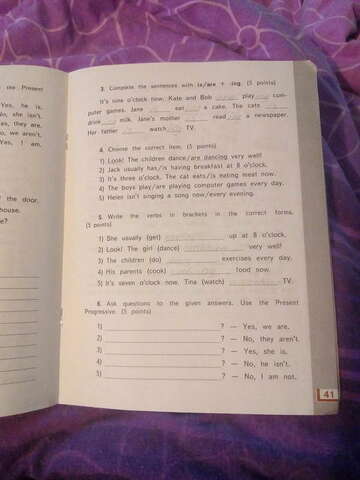 use Present
3. Complete the sentences with is/are + -ing. (5 points)
It's nine o'clock now. Kate and Bob play com-
puter games. Jane eat a cake. The cats
drink milk. Jane's mother read a newspaper.
Her father watch TV.
4. Choose the correct item. (5 points)
1) Look! The children dance/are dancing very well!
2) Jack usually has/is having breakfast at 8 o'clock.
3) It's three o'clock. The cat eats/is eating meat now.
4) The boys play/are playing computer games every day.
5) Helen isn't singing a song now/every evening.
5. Write the verbs in brackets in the correct forms.
(5 points)
1) She usually (get) up at 8 o'clock.
2) Look! The girl (dance) very well!
3) The children (do) exercises every day.
4) His parents (cook) food now.
5) It's seven o'clock now. Tina (watch) TV.
6. Ask questions to the given answers. Use the Present
Progressive. (5 points)
1) ? — Yes, we are.
2) ? — No, they aren't.
3) ? — Yes, she is.
4) ? — No, he isn't.
5) ? — No, I am not.
41
Yes, he is.
No, she isn't.
Yes, they are.
No, we aren't.
Yes, I am.
f the door.
house.